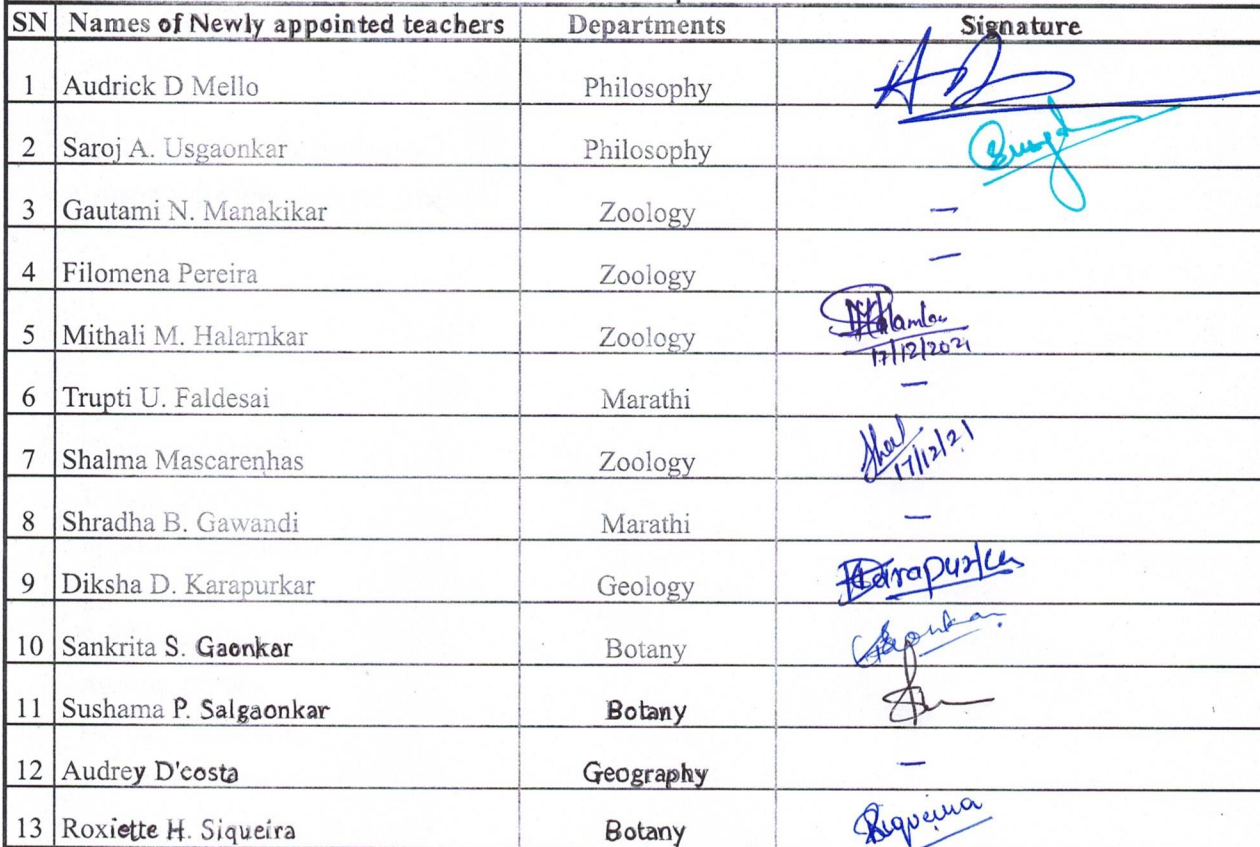 SN Names of Newly appointed teachers Departments Signature
1 Audrick D Mello Philosophy
2 Saroj A. Usgaonkar Philosophy
3 Gautami N. Manakikar Zoology –
4 Filomena Pereira Zoology –
5 Mithali M. Halarnkar Zoology
17/12/2021
6 Trupti U. Faldesai Marathi –
7 Shalma Mascarenhas Zoology 17/12/21
8 Shradha B. Gawandi Marathi –
9 Diksha D. Karapurkar Geology Karapurkar
10 Sankrita S. Gaonkar Botany Gaonkar
11 Sushama P. Salgaonkar Botany
12 Audrey D'costa Geography –
13 Roxiette H. Siqueira Botany Siqueira